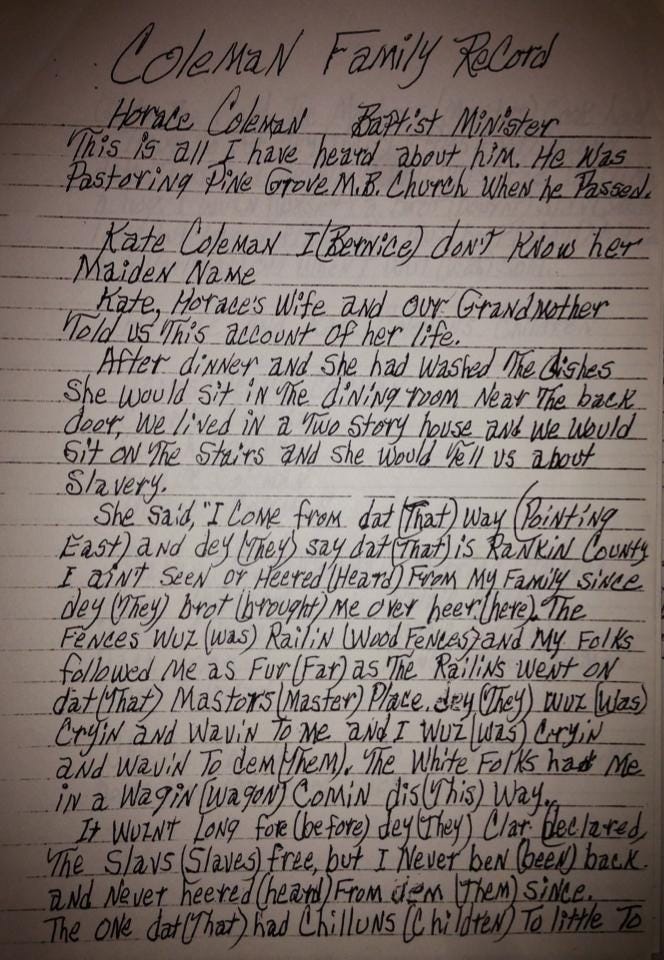 Coleman Family Record
Horace Coleman Baptist Minister
This is all I have heard about him. He was
Pastoring Pine Grove M.B. Church when he Passed.
Kate Coleman I (Bernice) don't know her
Maiden Name
Kate, Horace's Wife and our Grandmother
Told us This account of her life.
After dinner and she had washed The dishes
She would sit in The dining room near The back
door, we lived in a Two story house and we would
sit on The Stairs and she would Tell us about
Slavery.
She said, "I come from dat (That) way (Pointing
East) and dey (They) say dat (That) is Rankin County
I ain't seen or Heered (Heard) From My Family since
dey (They) brot (brought) me over heer (here). The
Fences wuz (was) Railin (Wood Fences) and My Folks
followed Me as Fur (Far) as The Railins went on
dat (That) Mastors (Master) Place. dey (They) wuz (was)
Cryin and Wavin To me and I wuz (was) Cryin
and wavin To dem (Them). The White Folks had Me
in a Wagin (wagon) Comin dis (This) Way.
It wuzn't Long fore (before) dey (They) Clar (declared,
The Slavs (Slaves) free, but I Never ben (been) back
and Never heered (heard) From dem (Them) since.
The one dat (That) had Chilluns (Children) To little To